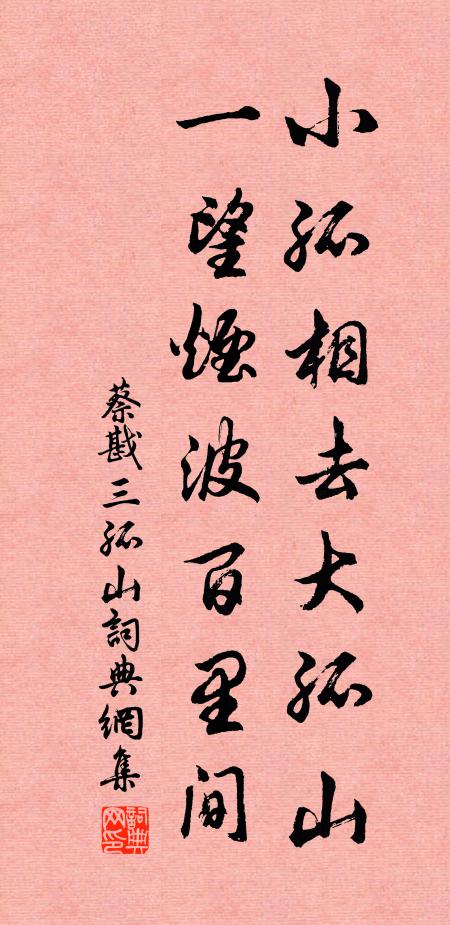 小孤相去大孤山
一望煙波百里間
蔡戡三孤山詞典網集
詞典网印